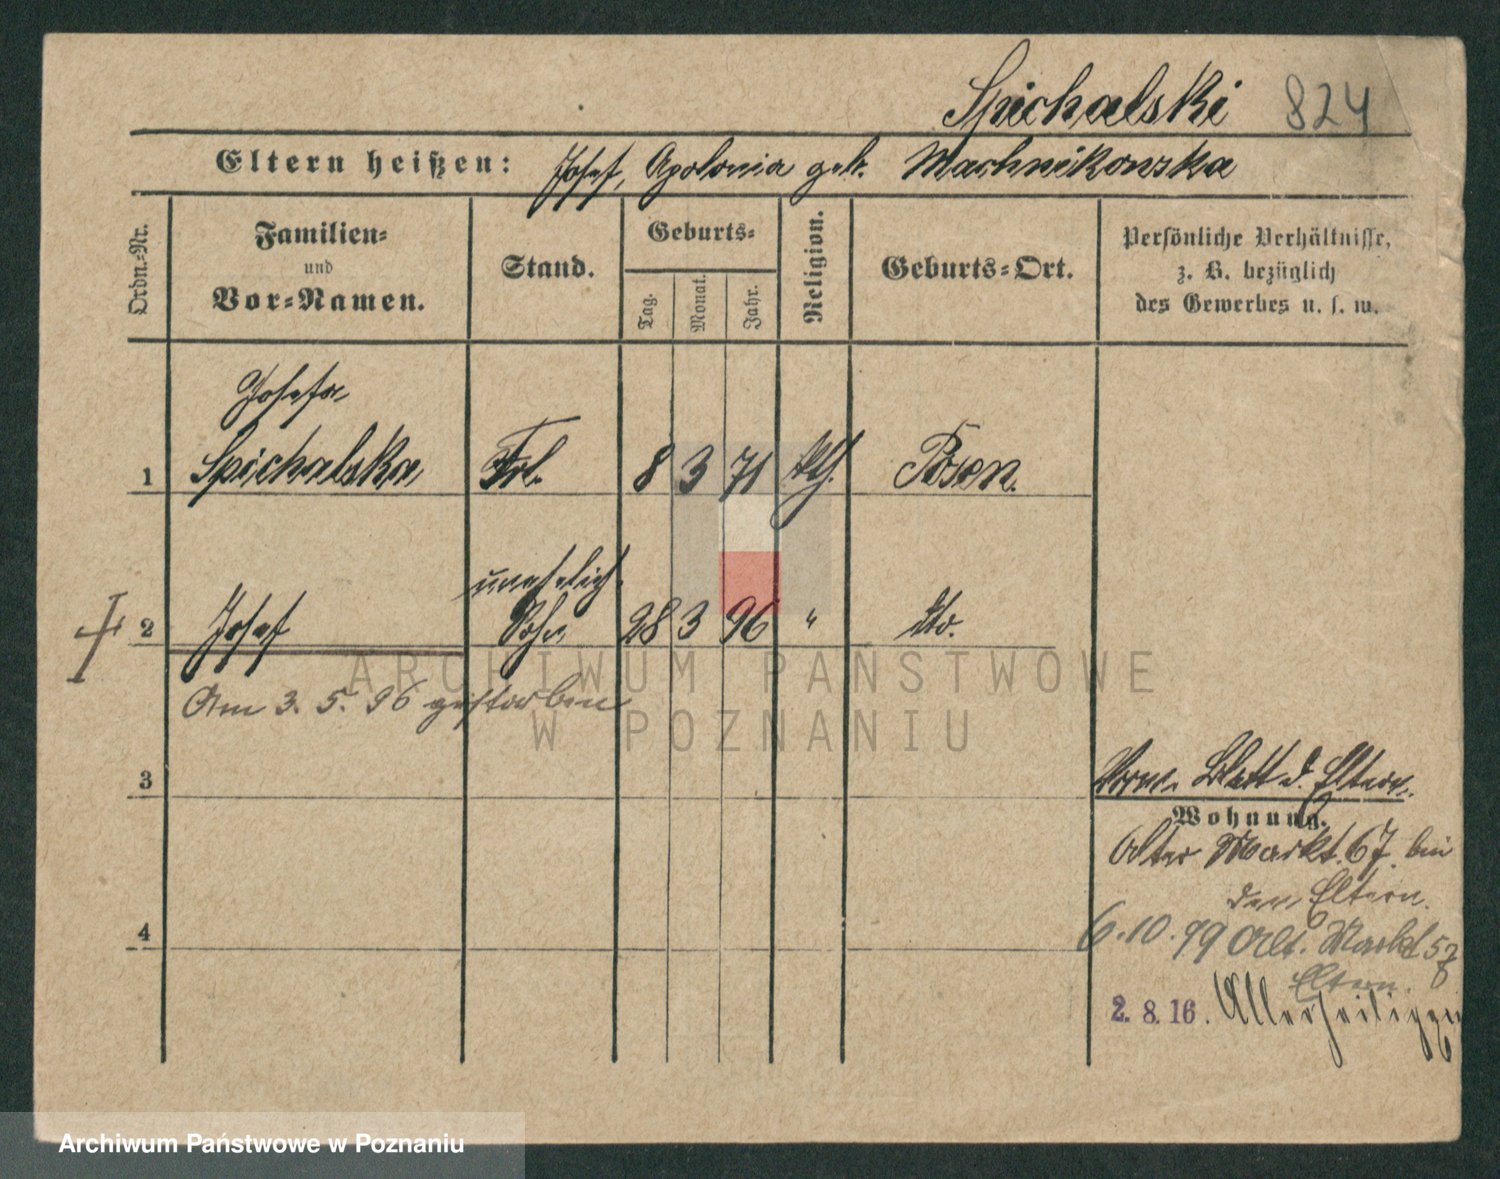 Spichalski 824
Eltern heißen: Josef, Apolonia geb. Machnikowska
Ordn.-Nr.
Familien-
und
Vor-Namen.
Stand.
Geburts-
Tag.
Monat.
Jahr.
Religion.
Geburts-Ort.
Persönliche Verhältnisse,
z. B. bezüglich
des Gewerbes u. s. w.
Josefa
1 Spichalska Frl. 8 3 71 kth. Posen.
unehelich.
2 Josef Sohn 28 3 96 " dto.
Am 3. 5. 96 gestorben
ARCHIWUM PAŃSTWOWE
W POZNANIU
3
Blatt d. Eltern.
Wohnung.
Alter Markt. 67. bei
den Eltern.
4
6.10.99 Alt. Markt 57
Eltern.
2. 8. 16. Allerheiligen
Archiwum Państwowe w Poznaniu